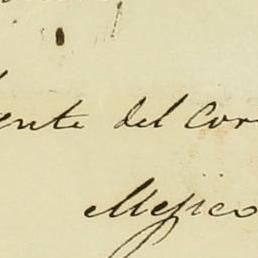 ente del Cor
Mejico